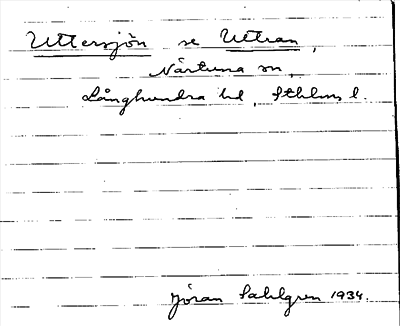 Uttersjön se Uttran,
Närtuna sn,
Långhundra hd, Sthlms l.
Jöran Sahlgren 1934.